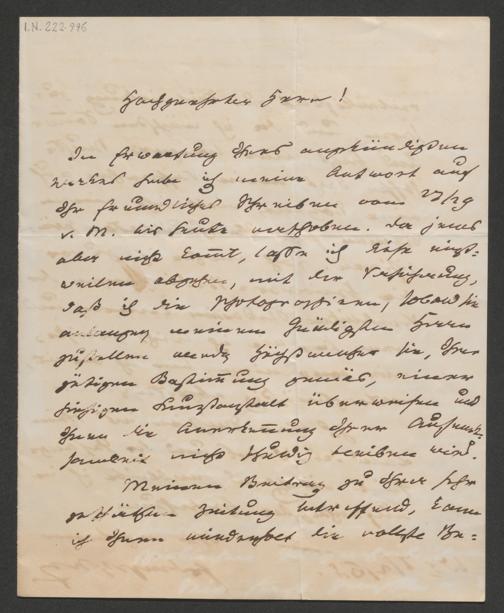 I.N. 222.996
Hochgeehrter Herr!
In Erwartung Ihres angekündigten
Werkes habe ich meine Antwort auf
Ihr freundliches Schreiben vom 27/29
v. M. bis heute verschoben. Da jenes
aber nicht kommt, lasse ich diese einst-
weilen abgehen, mit der Versicherung,
daß ich die Photographieen, sobald sie
anlangen meinem gnädigsten Herrn
zustellen werde, Höchstwelcher sie, Ihrer
gütigen Bestimmung gemäs, einer
hiesigen Kunstanstalt überweisen und
Ihnen die Anerkennung Ihrer Aufmerk-
samkeit nicht schuldig bleiben wird.
Meinen Beitrag zu Ihrer sehr
geschätzten Zeitung betreffend, kann
ich Ihnen mindestens die vollste Be-